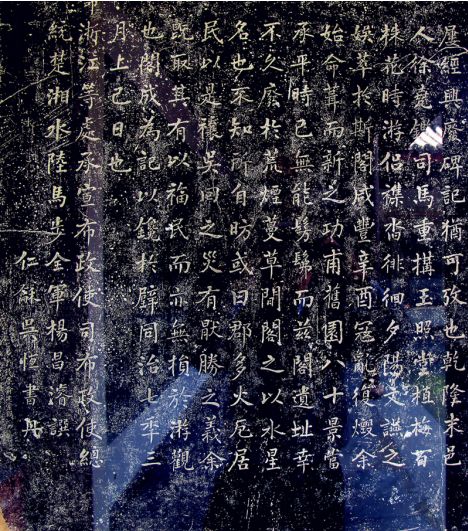 歷經興廢碑記猶可攷也乾隆末邑
人徐堯鑑司馬重搆玉照堂植梅百
株花時游侶襟沓徘徊夕陽文讌之
娛萃於斯閣咸豐辛酉寇亂復燬余
始命葺而新之功甫舊園八十景當
承平時已無能髣髴而茲閣遺址幸
不久廢於荒煙蔓草間閣之以水星
名也不知所自昉或曰郡多火戹居
民以是禳吳回之災有厭勝之義余
既取其有以福民而亦無損於游觀
也閣成為記以鑱於壁同治七年三
月上巳日也
浙江等處承宣布政使司布政使總
統楚湘水陸馬步全軍楊昌濬譔
仁龢吳恒書丹